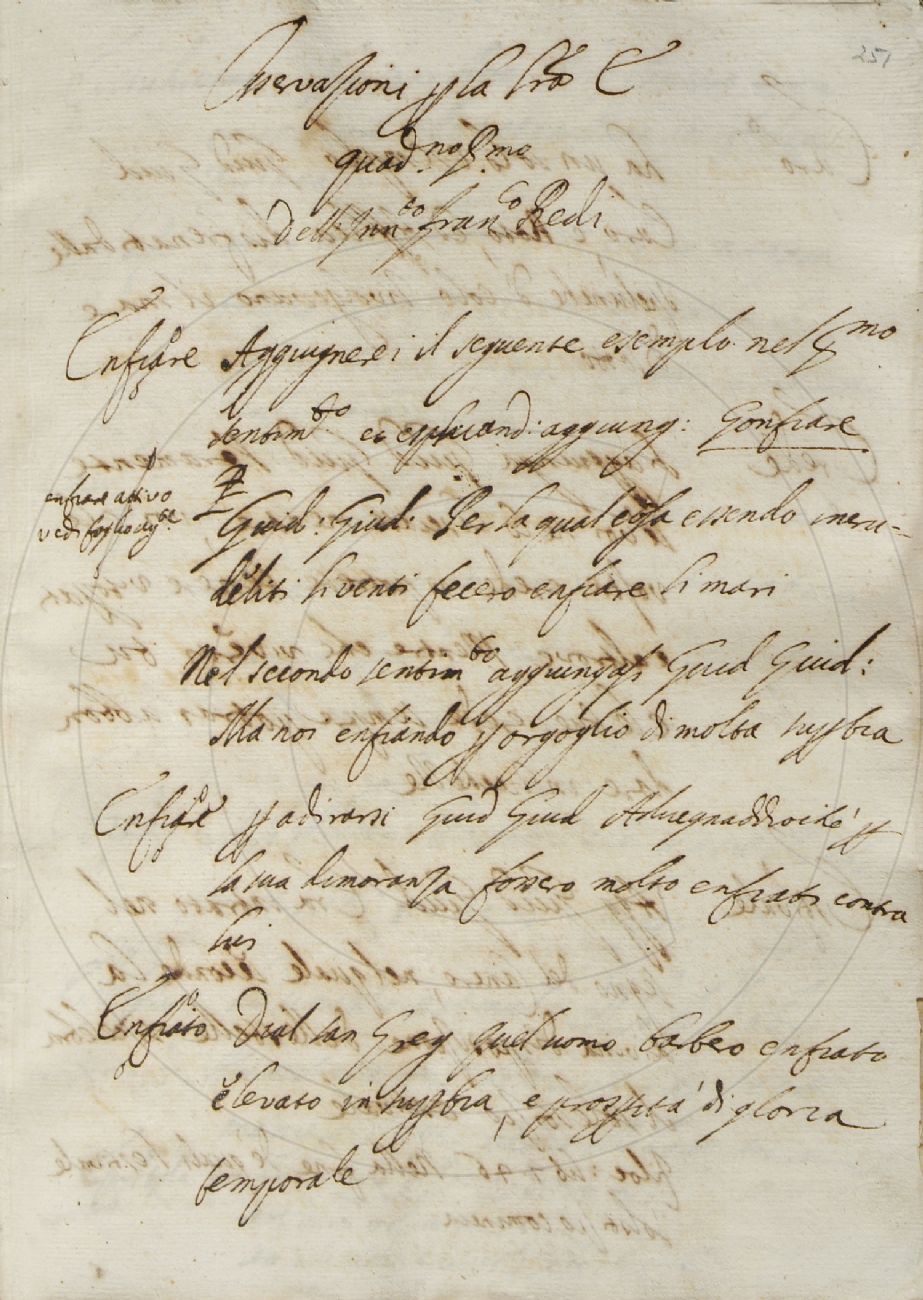 251
Osservazioni p la lrã E
quad.no P.mo
Dell'Inn.to Fran.co Redi
Enfiare Aggiugnerei il seguente esemplo nel p.mo
sentim.to e esplicand: aggiung: Gonfiare
enfiare attivo
vedi foglio
Guid: Giud: Per la qual cosa essendo incru=
deliti li venti fecero enfiare li mari
Nel secondo sentim.to aggiungasi Guid Giud:
Ma noi enfiando p orgoglio di molta suppbia
Enfiare p adirarsi Guid Giud Advegnaddioiché p
la sua dimoranza fossero molto enfiati contra
lui
Enfiato Dial san Greg quel uomo barbero enfiato
elevato in suppbia, e prosppità di gloria
temporale